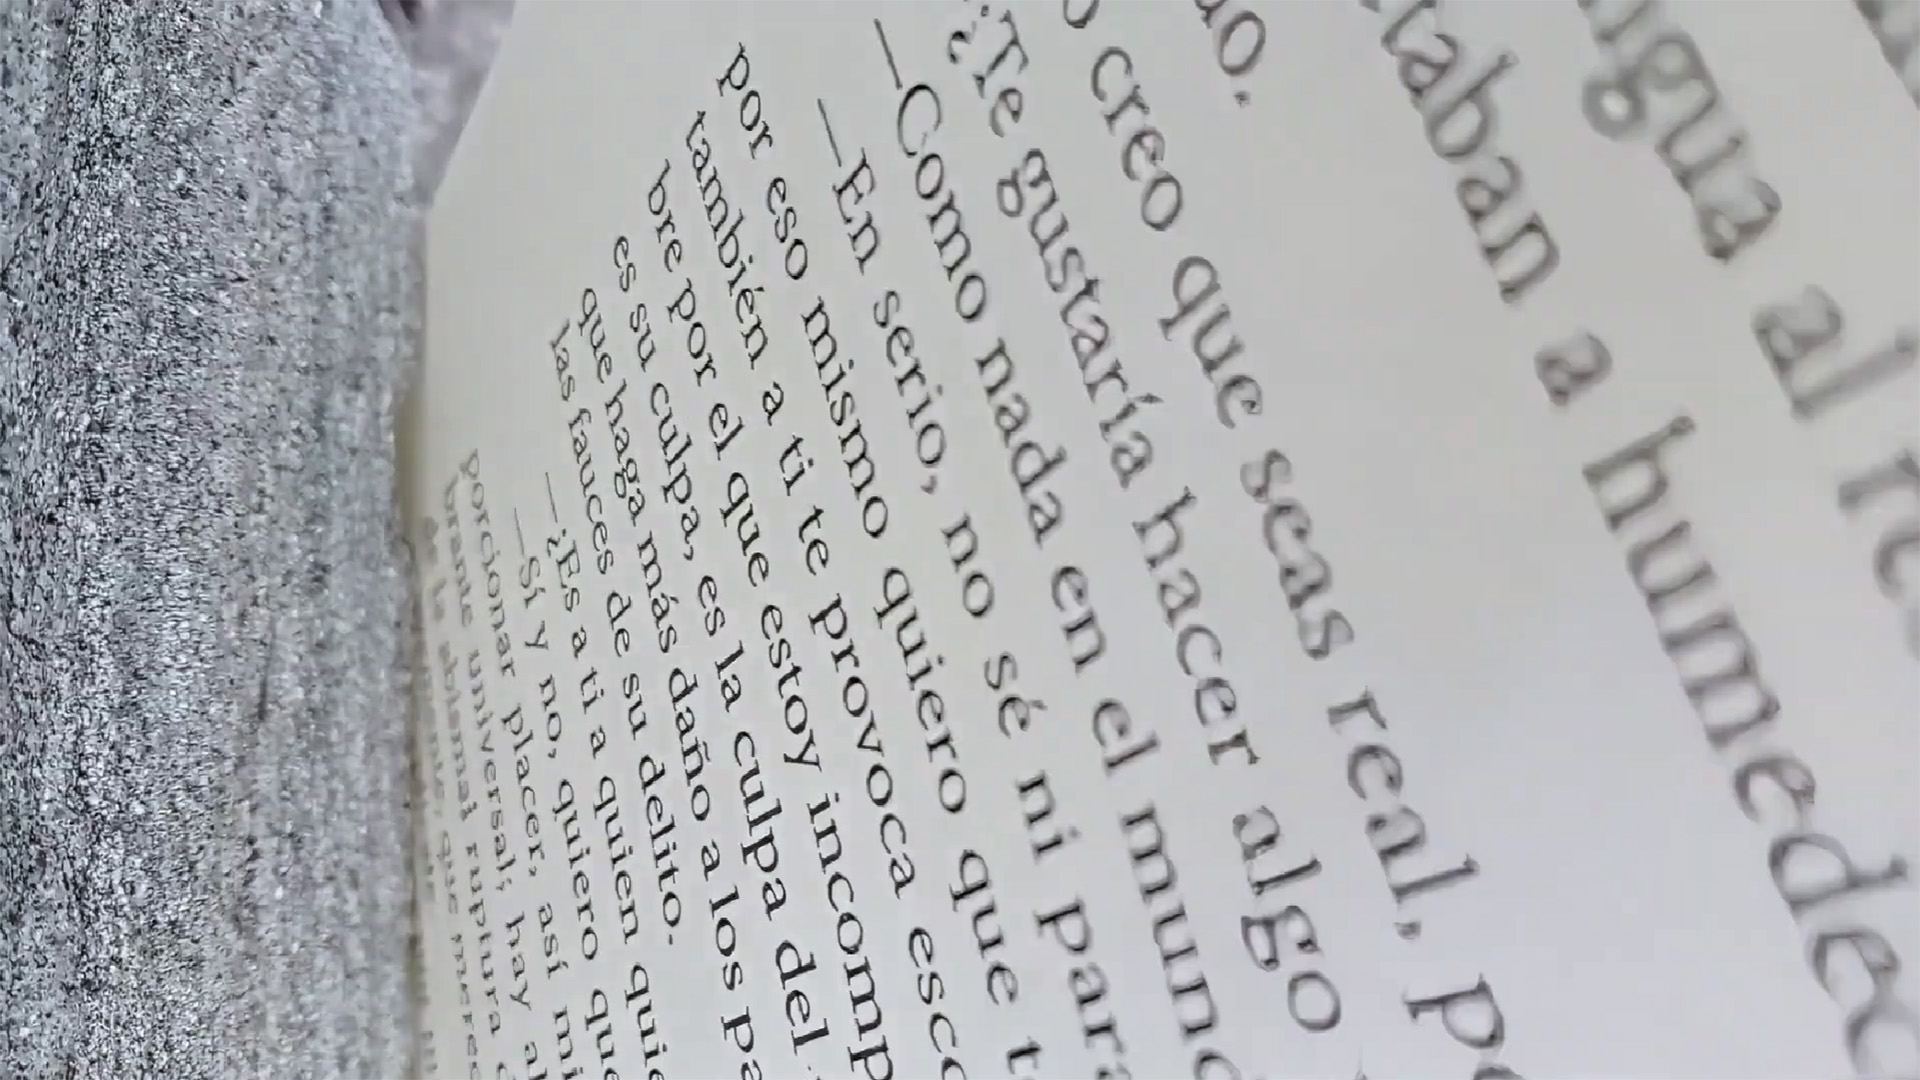 ngua al re
taban a humedec
do.
o creo que seas real, pe
¿Te gustaría hacer algo
—Como nada en el mund
—En serio, no sé ni para
por eso mismo quiero que t
también a ti te provoca esc
bre por el que estoy incomp
es su culpa, es la culpa del
que haga más daño a los pa
las fauces de su delito.
—¿Es a ti a quien quie
—Sí y no, quiero que
porcionar placer, así mi
brante universal; hay al
la abismal ruptura d
que merec